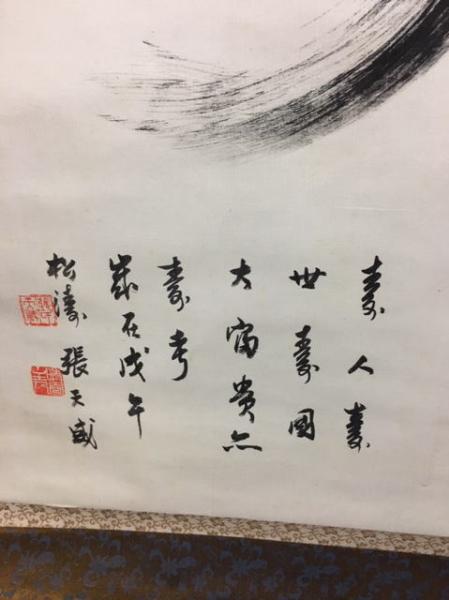 壽人壽
世壽國
大富貴亦
壽考
歲在戊午
松濤 張天威